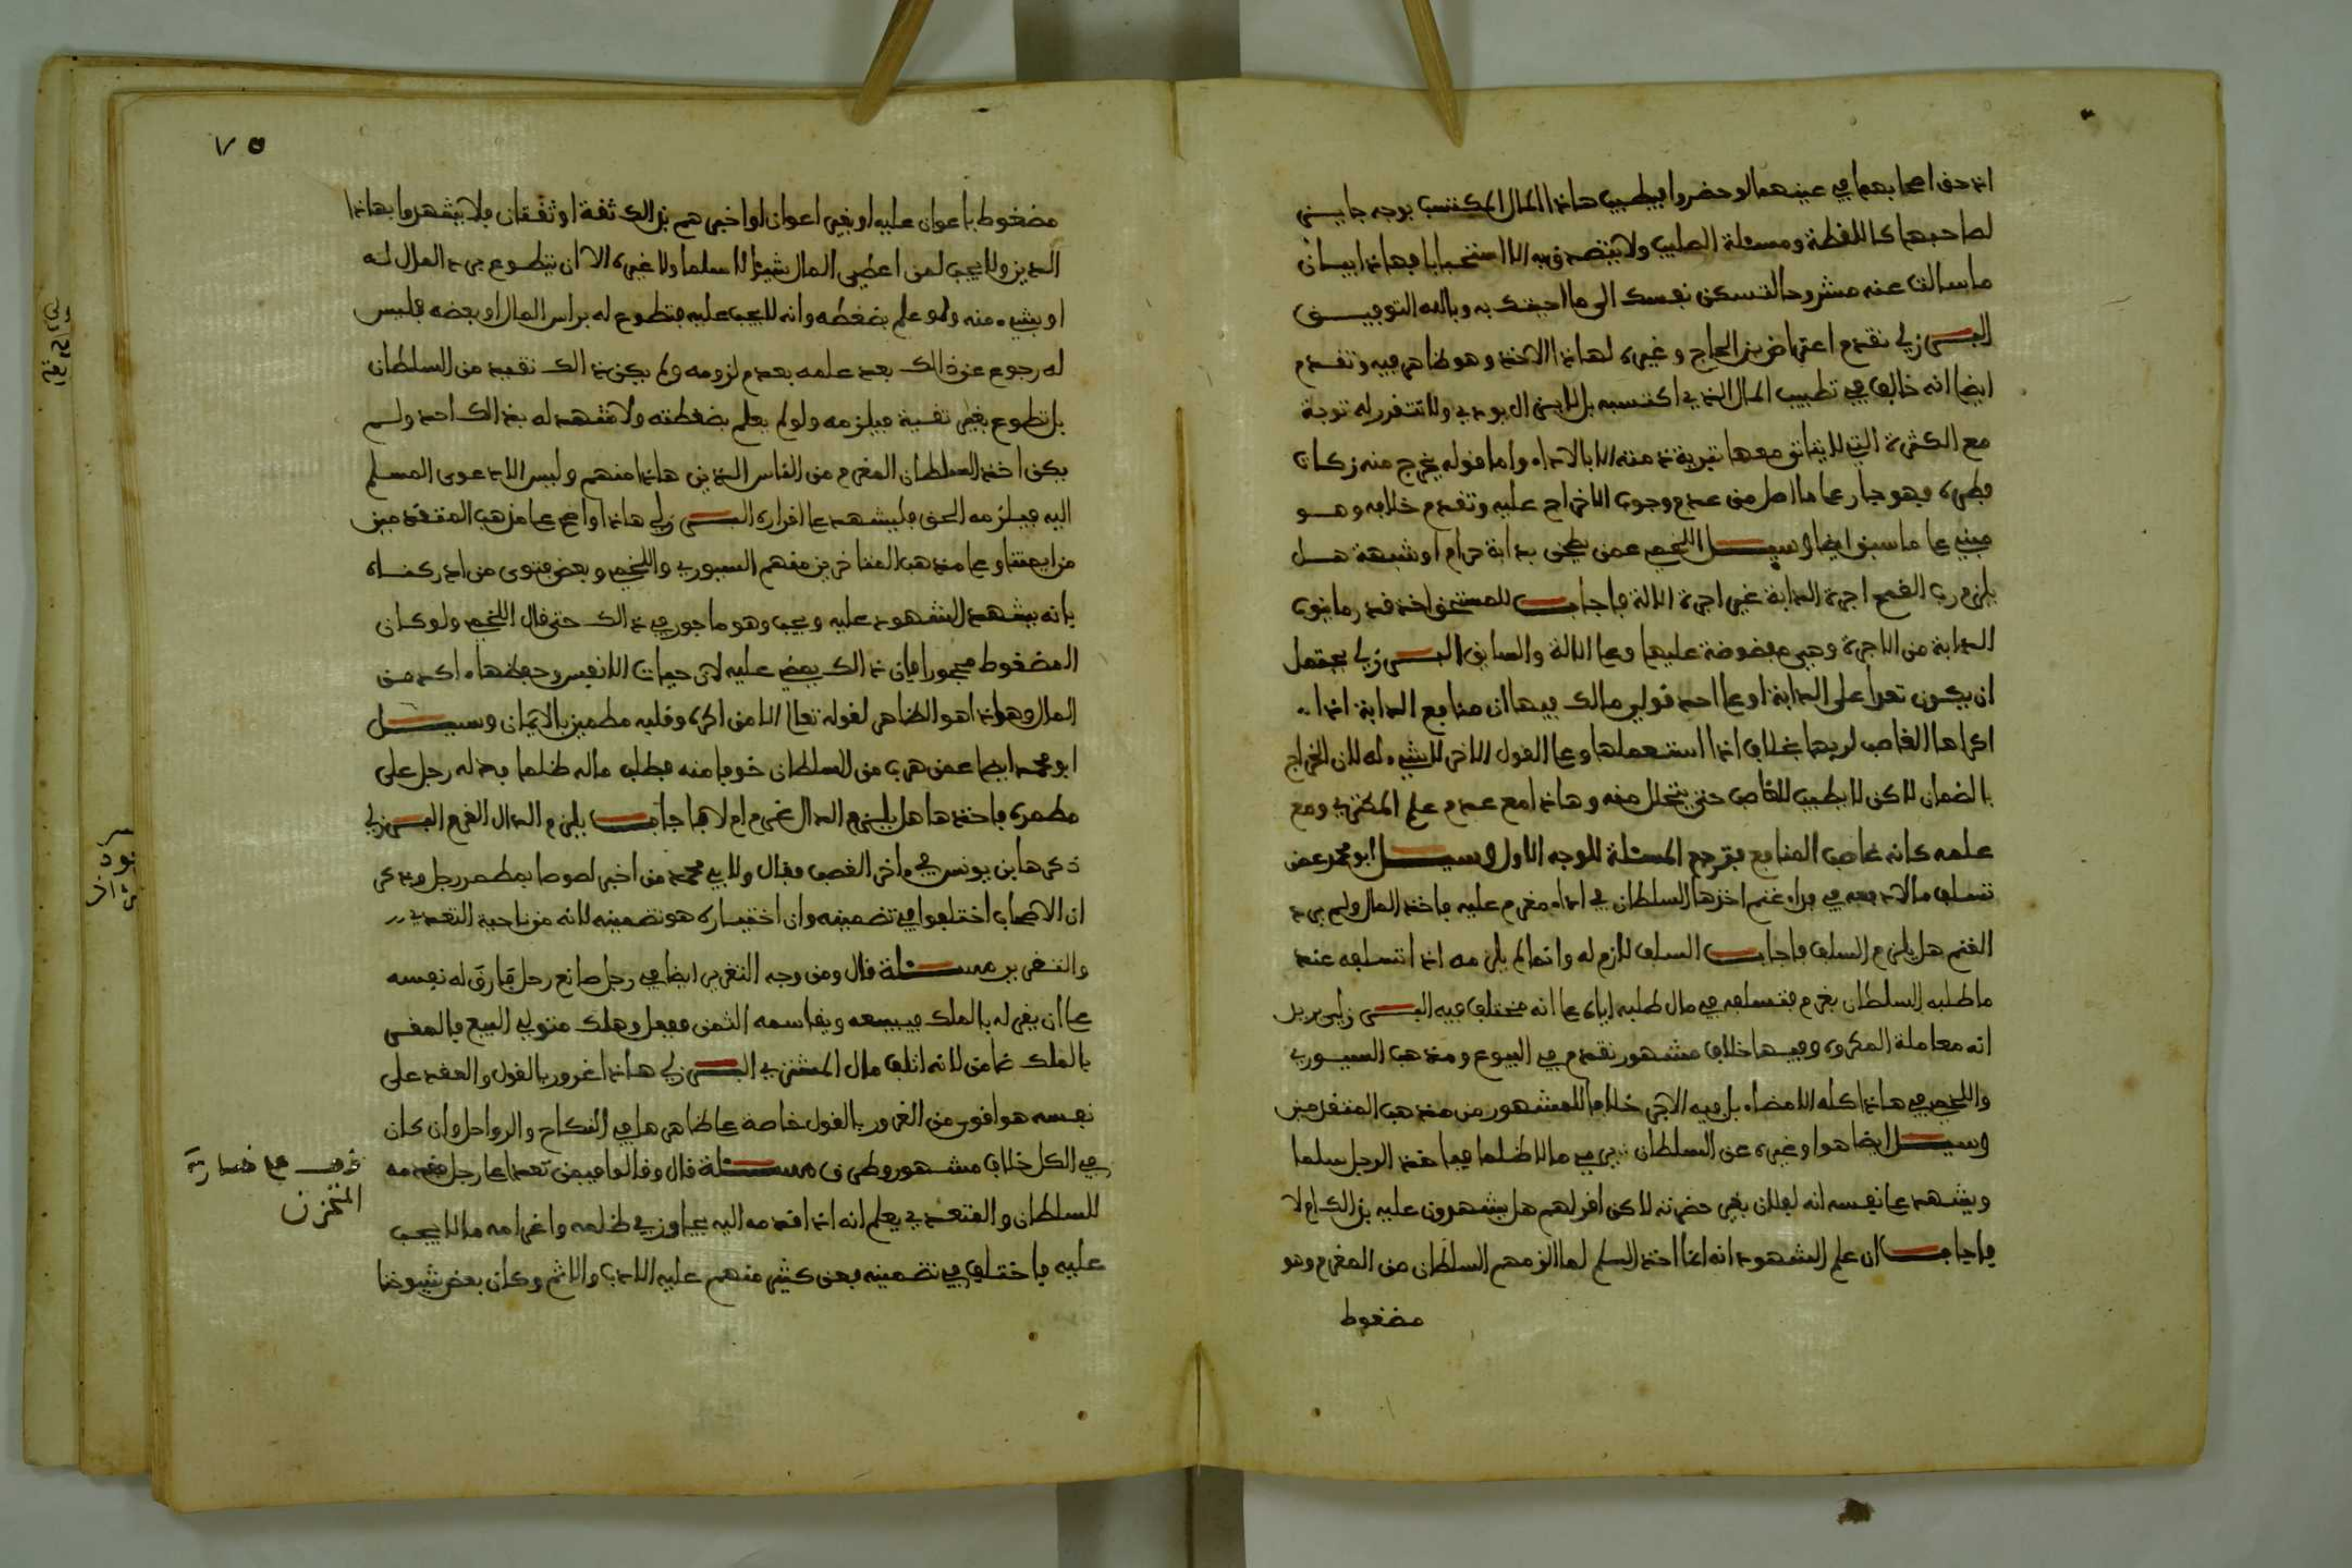 اذ حق اصحابهما في عينهما لو حضروا فيطيب هاذا المال المكتسب بوجه جايز
لصاحبها كاللقطة ومسئلة الصليب ولا يتصدق به الا استحبابا فهاذا بيان
ما سالت عنه مشروحا لتسكن نفسك الى ما اجبتك به وبالله التوفيق
البرزلي تقدم اعتراض بن الحاج وغيره لهاذا الاخذ وهو ظاهر فيه وتقدم
ايضا انه خالف في تطييب المال الذي اكتسبه بل لا يزال يودي ولا تتقرر له توبة
مع الكثرة التي لا يتاتى معها تبرية ذمته الا بالاداء واما قوله يخرج منه زكاة
فطره فهو جار على ما اصل من عدم وجوب الاخراج عليه وتقدم خلافه وهو
مبني على ما سبق ايضا وسيل اللخمي عمن يطحن بدابة حرام او شبهة هل
يلزم رب القمح اجرة الدابة غير اجرة الالة فاجاب للمستحق اخذ قدر ما ينوب
الدابة من الاجرة وهي مفضوضة عليها وعلى الالة والسايق البرزلي يحتمل
ان يكون تعدا على الدابة او على احد قولي مالك فيها ان منافع الدابة اذا
اكراها الغاصب لربها بخلاف اذا استعملها وعلى القول الاخر لا شيء له لان الخراج
بالضمان لاكن لا يطيب للغاصب حتى يتحلل منه وهاذا مع عدم علم المكتري ومع
علمه كانه غاصب المنافع فترجع المسئلة للوجه الاول وسيل ابو محمد عمن
تسلف مالا دفعه في فداء غنم اخذها السلطان في اداء مغرم عليه فاخذ المال ولم يرد
الغنم هل يلزم السلف فاجاب السلف لازم له وانما لم يلزمه اذا تسلفه عند
ما طلبه السلطان بغرم فتسلفه في مال طلبه اياه على انه مختلف فيه البرزلي يريد
انه معاملة المكروه وفيها خلاف مشهور تقدم في البيوع ومذهب السيوري
واللخمي في هاذا كله الامضاء بل فيه الاجر خلافا للمشهور من مذهب المتقدمين
وسيل ايضا هو او غيره عن السلطان يرمي مالا ظلما فياخذ الرجل سلما
ويشهد على نفسه انه لفلان بغير حضرته لاكن اقر لهم هل يشهدون عليه بذالك ام لا
فاجاب ان علم الشهود انه انما اخذ السلم لما الزمهم السلطان من المغرم وهو
مضغوط
٧٥
مضغوط باعوان عليه او بغير اعوان او اخبرهم بذالك ثقة او ثقتان فلا يشهدوا بهاذا
الدين ولا يجب لمن اعطى المال شيئا لا سلما ولا غيره الا ان يتطوع برد المال له
او بشيء منه ولو علم بضغطه وانه لا يجب عليه فتطوع له براس المال او بعضه فليس
له رجوع عن ذالك بعد علمه بعدم لزومه ولم يكن ذالك تقية من السلطان
بل تطوع بغير تقية فيلزمه ولو لم يعلم بضغطته ولا شهد له بذالك احد ولم
يكن اخذ السلطان المغرم من الناس الذين هاذا منهم وليس الا دعوى المسلم
اليه فيلزمه الحق فليشهد على اقراره البرزلي هاذا واضح على مذهب المتقدمين
من ايمتنا وعلى مذهب المتاخرين منهم السيوري واللخمي وبعض فتوى من ادركناه
بانه يشهد الشهود عليه ويجب وهو ماجور في ذالك حتى قال اللخمي ولو كان
المضغوط محجورا فان ذالك يمضي عليه لان حيات الانفس وحفظها اكد من
المال وهاذا هو الظاهر لقوله تعالى الا من اكره وقلبه مطمين بالايمان وسيل
ابو محمد ايضا عمن هرب من السلطان خوفا منه فطلب ماله ظلما فدله رجل على
مطمره فاخذها هل يلزم الدال غرم ام لا فاجاب يلزم الدال الغرم البرزلي
ذكرها بن يونس في ءاخر الغصب فقال ولابي محمد من اخبر لصوصا بمطمر رجل وذكر
ان الاصحاب اختلفوا في تضمينه وان اختياره هو تضمينه لانه من ناحية التعدي
والتغرير مسئلة قال ومن وجه التغرير ايضا في رجل صانع رجل فارق له نفسه
على ان يقر له بالملك فيبيعه ويقاسمه الثمن ففعل وهلك متولي البيع فالمقر
بالملك ضامن لانه اتلف مال المشتري البرزلي هاذا غرور بالقول والعقد على
نفسه هو اقوى من الغرور بالقول خاصة على ظاهر ها في النكاح والرواحل وان كان
في الكل خلاف مشهور وطرق مسئلة قال وقالوا فيمن تعدا على رجل فقدمه
للسلطان والمتعدي يعلم انه اذا قدمه اليه يجاوز في ظلمه واغرامه ما لا يجب
عليه فاختلف في تضمينه فعن كثير منهم عليه الادب والاثم وكان بعض شيوخنا
المتخزن